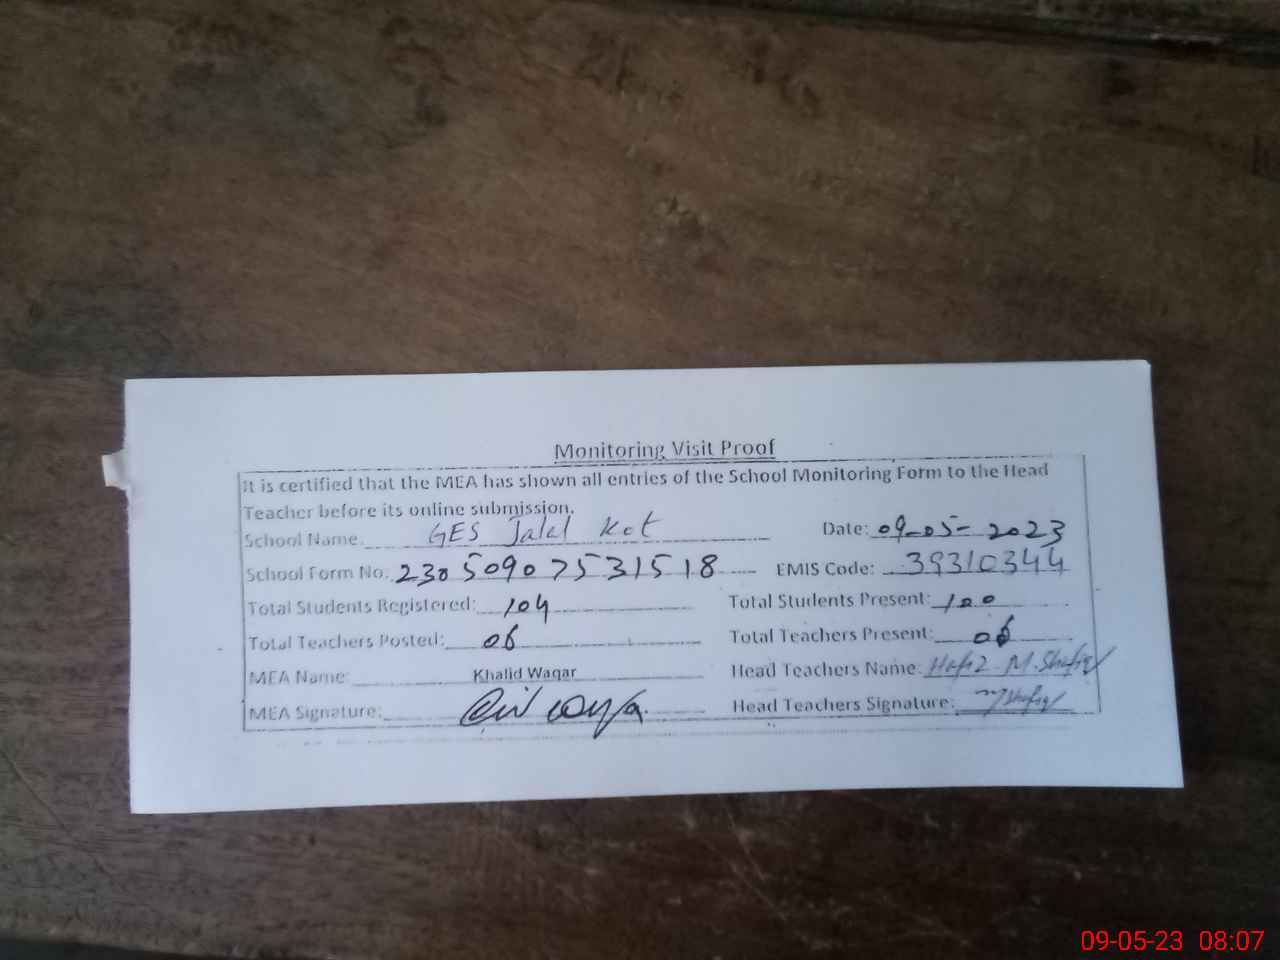 Monitoring Visit Proof
It is certified that the MEA has shown all entries of the School Monitoring Form to the Head
Teacher before its online submission.
School Name: GES Jalal Kot Date: 09-05-2023
School Form No: 23050907531518 EMIS Code: 39310344
Total Students Registered: 104 Total Students Present: 100
Total Teachers Posted: 06 Total Teachers Present: 06
MEA Name: Khalid Waqar Head Teachers Name: Hafiz M. Shafiq
MEA Signature: Head Teachers Signature: M Shafiq
09-05-23 08:07